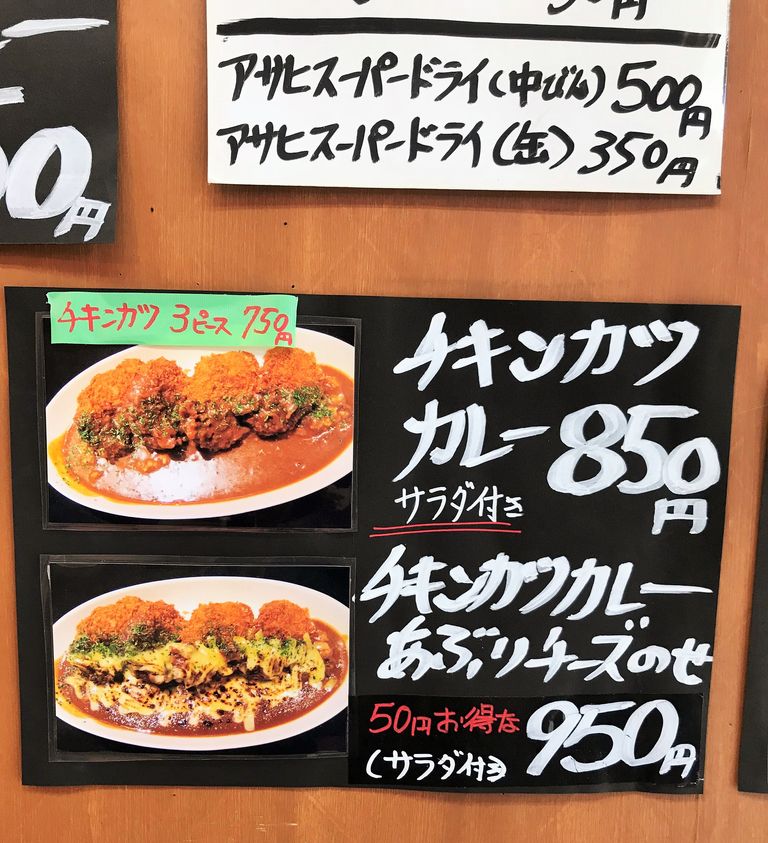 アサヒスーパードライ(中びん)500円
アサヒスーパードライ(缶)350円
チキンカツ 3ピース 750円
チキンカツ
カレー850円
サラダ付き
チキンカツカレー
あぶりチーズのせ
50円お得な950円
(サラダ付き)